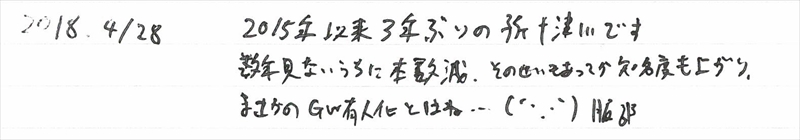 2018.4/28 2015年以来3年ぶりの新十津川です
数年見ないうちに本数減、そのせいもあってか知名度も上がり、
まさかのGW有人化とはね…(^-^;)服部